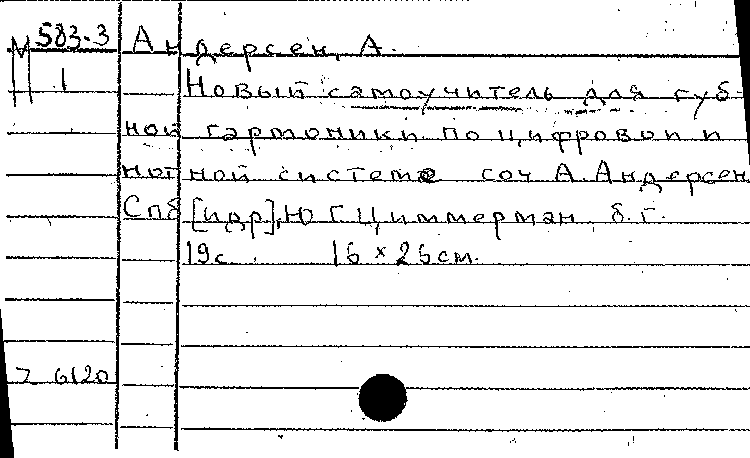 М 583-3
1
Андерсен, А.
Новый самоучитель для губ-
ной гармоники по цифровой и
нотной системе соч А. Андерсен
Спб [и др], Ю Г Циммерман, б. г.
19 с. 16 × 26 см.
Z 6120